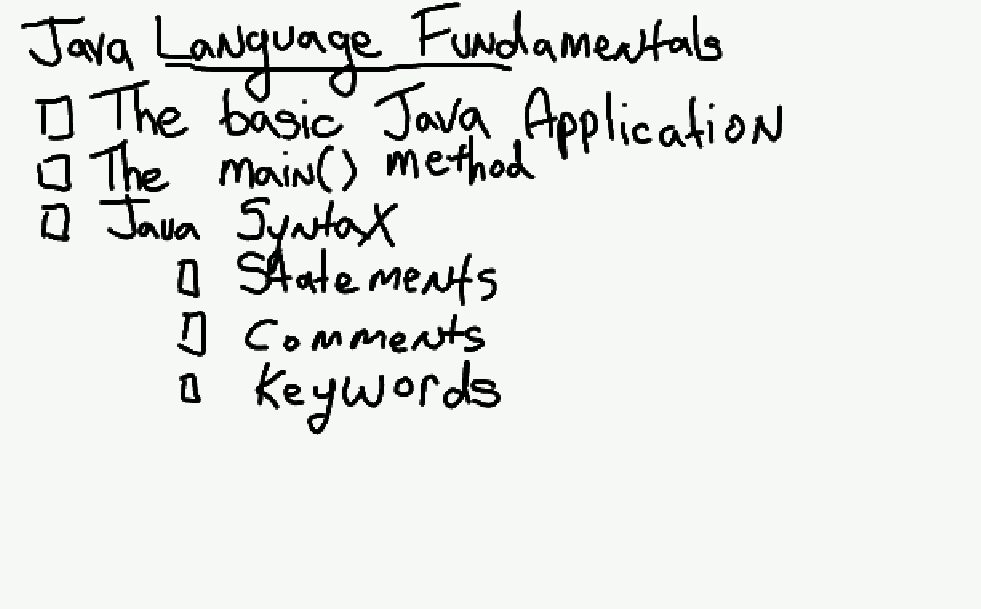 Java Language Fundamentals
□ The basic Java Application
□ The main() method
□ Java Syntax
□ Statements
□ Comments
□ Keywords